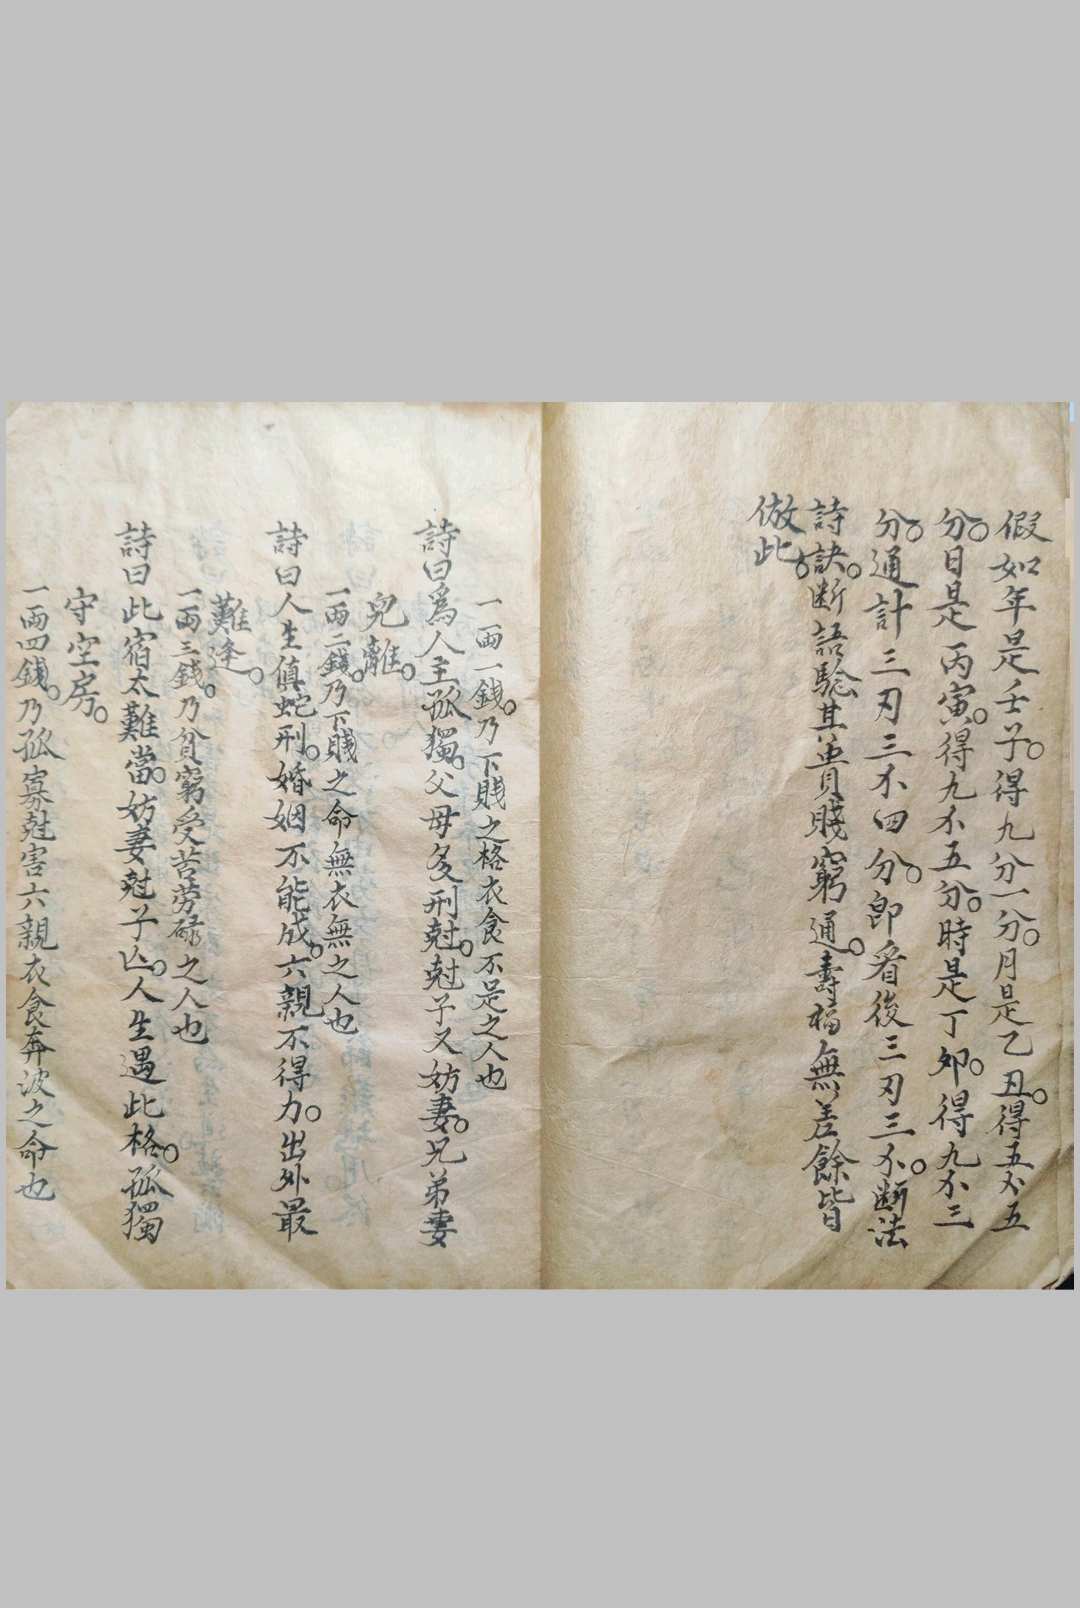 假如年是壬子。得九分一分。月是乙丑。得五分五
分。日是丙寅。得九个五分。時是丁卯。得九个三
分。通計三刃三个四分。即看後三刃三个。断法
詩訣。断語驗其貴賤窮通。壽福無差餘皆
倣此。
一両一錢。乃下賎之格衣食不足之人也
詩曰爲人主孤獨。父母多刑尅。尅子又妨妻。兄弟妻
兒離。
一両二錢。乃下賎之命無衣無之人也
詩曰人生値蛇刑。婚姻不能成。六親不得力。出外最
難逢。
一両三錢。乃貧窮受苦劳碌之人也
詩曰此宿太難當。妨妻尅子亾。人生遇此格。孤獨
守空房。
一両四錢。乃孤寡尅害六親衣食奔波之命也